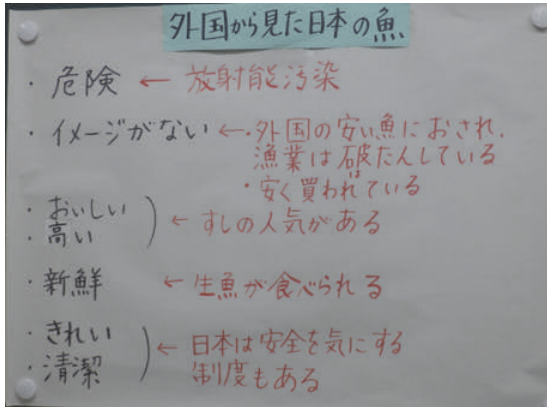 外国から見た日本の魚
・危険 ← 放射能汚染
・イメージがない ← ・外国の安い魚におされ、
漁業は破たんしている
・安く買われている
・おいしい
・高い ) ← すしの人気がある
・新鮮 ← 生魚が食べられる
・きれい
・清潔 ) ← 日本は安全を気にする
制度もある